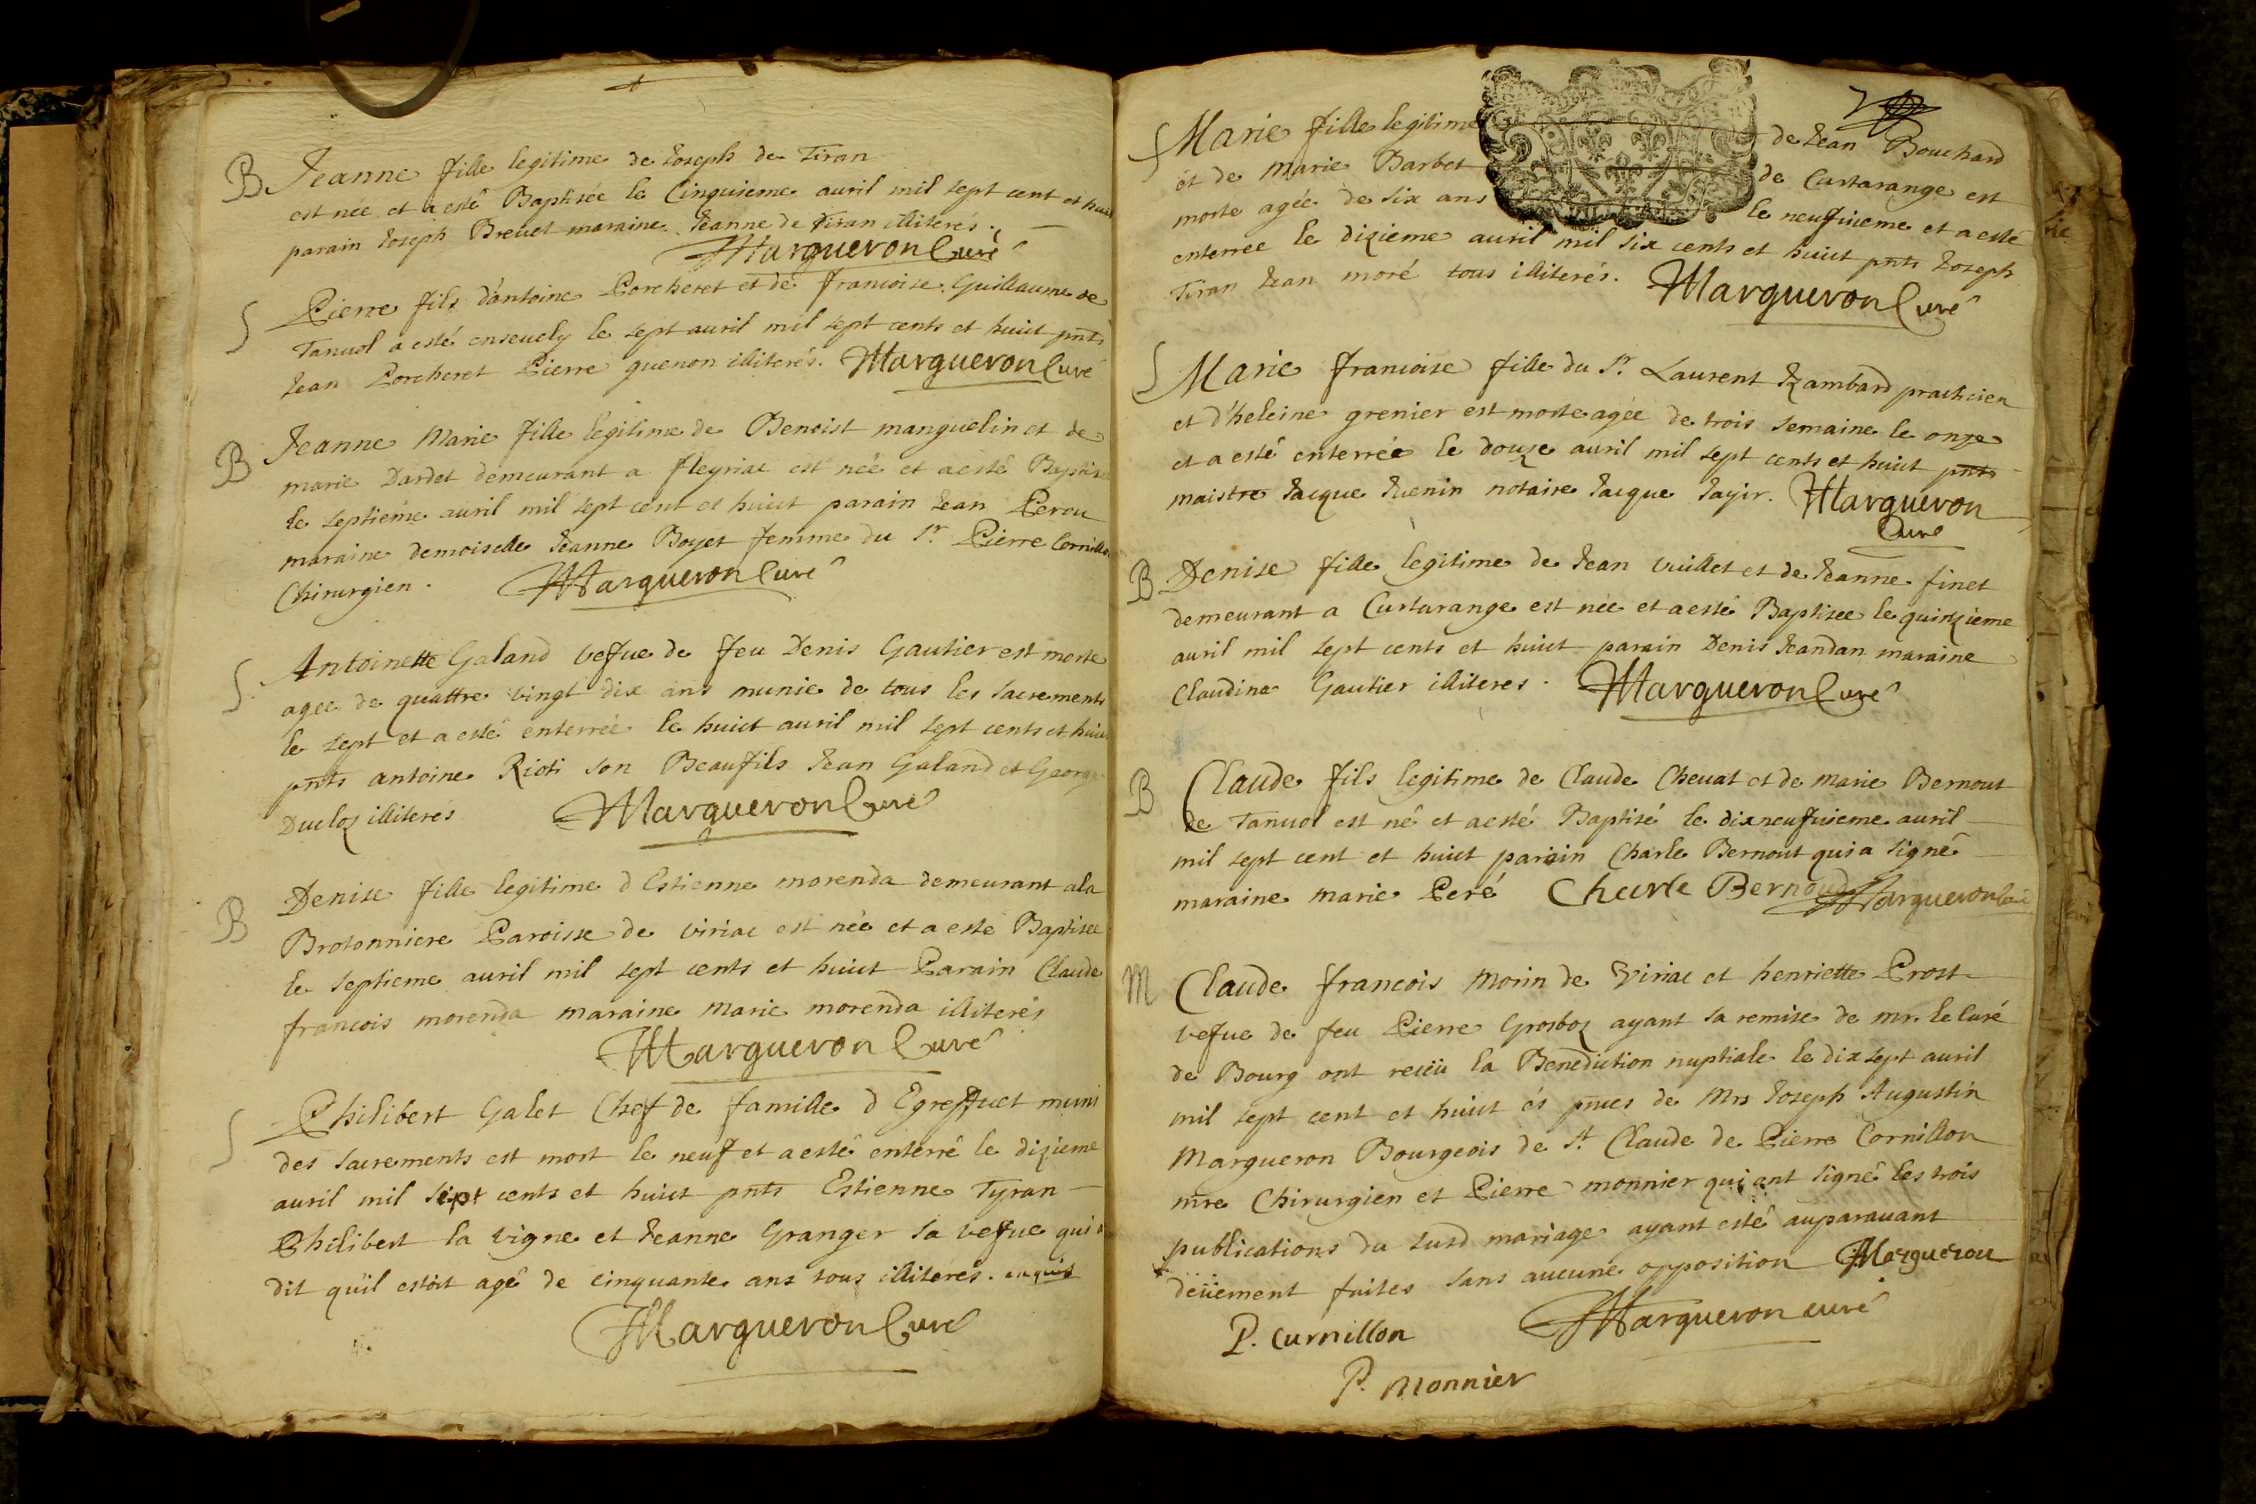 B Jeanne fille legitime de Joseph de Tiran
est née et a esté Baptisée le Cinquieme auril mil sept cent et huict
parain Joseph Breuet maraine Jeanne de Tiran illiterés.
Margueron Curé
S Pierre fils d'antoine Porcheret et de francoise Guillaume de
Tanuol a esté enseuely le sept auril mil sept cents et huict pnts
Jean Porcheret Pierre guenon illiterés. Margueron Curé
B Jeanne Marie fille legitime de Benoist manguelin et de
marie Dardet demeurant a fleyriac est née et a esté Baptisée
le septieme auril mil sept cent et huict parain Jean Perou
maraine demoiselle Jeanne Boyet femme du Sr. Pierre Cornillon
Chirurgien. Margueron Curé
S. Antoinette Galand vefue de feu Denis Gautier est morte
agee de quattre vingt dix ans munie de tous les sacrements
le sept et a esté enterrée le huict auril mil sept cents et huict
pnts antoine Rioti son Beaufils Jean Galand et George
Duclos illiterés Margueron Curé
B Denise fille legitime d Estienne morenda demeurant a la
Brotonniere Paroisse de viriac est née et a esté Baptisee
le septieme auril mil sept cents et huict Parain Claude
francois morenda maraine Marie morenda illiterés
Margueron Curé
S Philibert Galet Chef de famille d Egreffuet muni
des sacrements est mort le neuf et a esté enterré le dizieme
auril mil sept cents et huict pnts Estienne Tyran
Philibert la vigne et Jeanne Granger sa vefue qui a
dit qu'il estoit agé de cinquante ans tous illiterés. enquis
Margueron Curé
S Marie fille legitime de Jean Bouchard
et de Marie Barbet de Curtarange est
morte agée de six ans le neufuieme et a esté
enterrée le dizieme auril mil six cents et huict pnts Joseph
Tiran Jean moré tous illiterés. Margueron Curé
S Marie francoise fille du Sr. Laurent Jzambard practicien
et d'heleine grenier est morte agée de trois semaine le onze
et a esté enterrée le douze auril mil sept cents et huict pnts
maistre Jacque Juenin notaire Jacque Jayir. Margueron
Curé
B Denise fille legitime de Jean vuillet et de Jeanne finet
demeurant a Curtarange est née et a esté Baptisee le quinzieme
auril mil sept cents et huict parain Denis Jeandan maraine
Claudine Gautier illiteres. Margueron Curé
B Claude fils legitime de Claude Cheuat et de marie Bernout
de Tanuol est né et a esté Baptisé le dixneufuieme auril
mil sept cent et huict parain Charle Bernout qui a signé
maraine marie Peré Charle Bernoud Margueron Curé
M Claude francois Morin de Viriac et henriette Prost
vefue de feu Pierre Grosboz ayant sa remise de mr. le Curé
de Bourg ont receu la Benediction nuptiale le dix sept auril
mil sept cent et huict és pnces de Mrs Joseph Augustin
Margueron Bourgeois de St Claude de Pierre Cornillon
mre Chirurgien et Pierre monnier qui ont signé les trois
publications du susd mariage ayant esté auparauant
deüement faites sans aucune opposition Margueron
P. Curnillon Margueron curé
P. Monnier